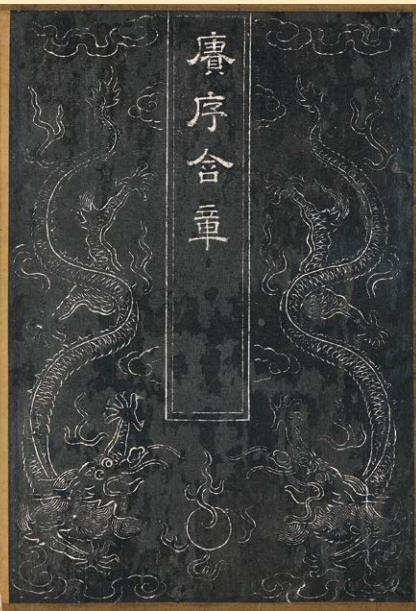 賡序含章